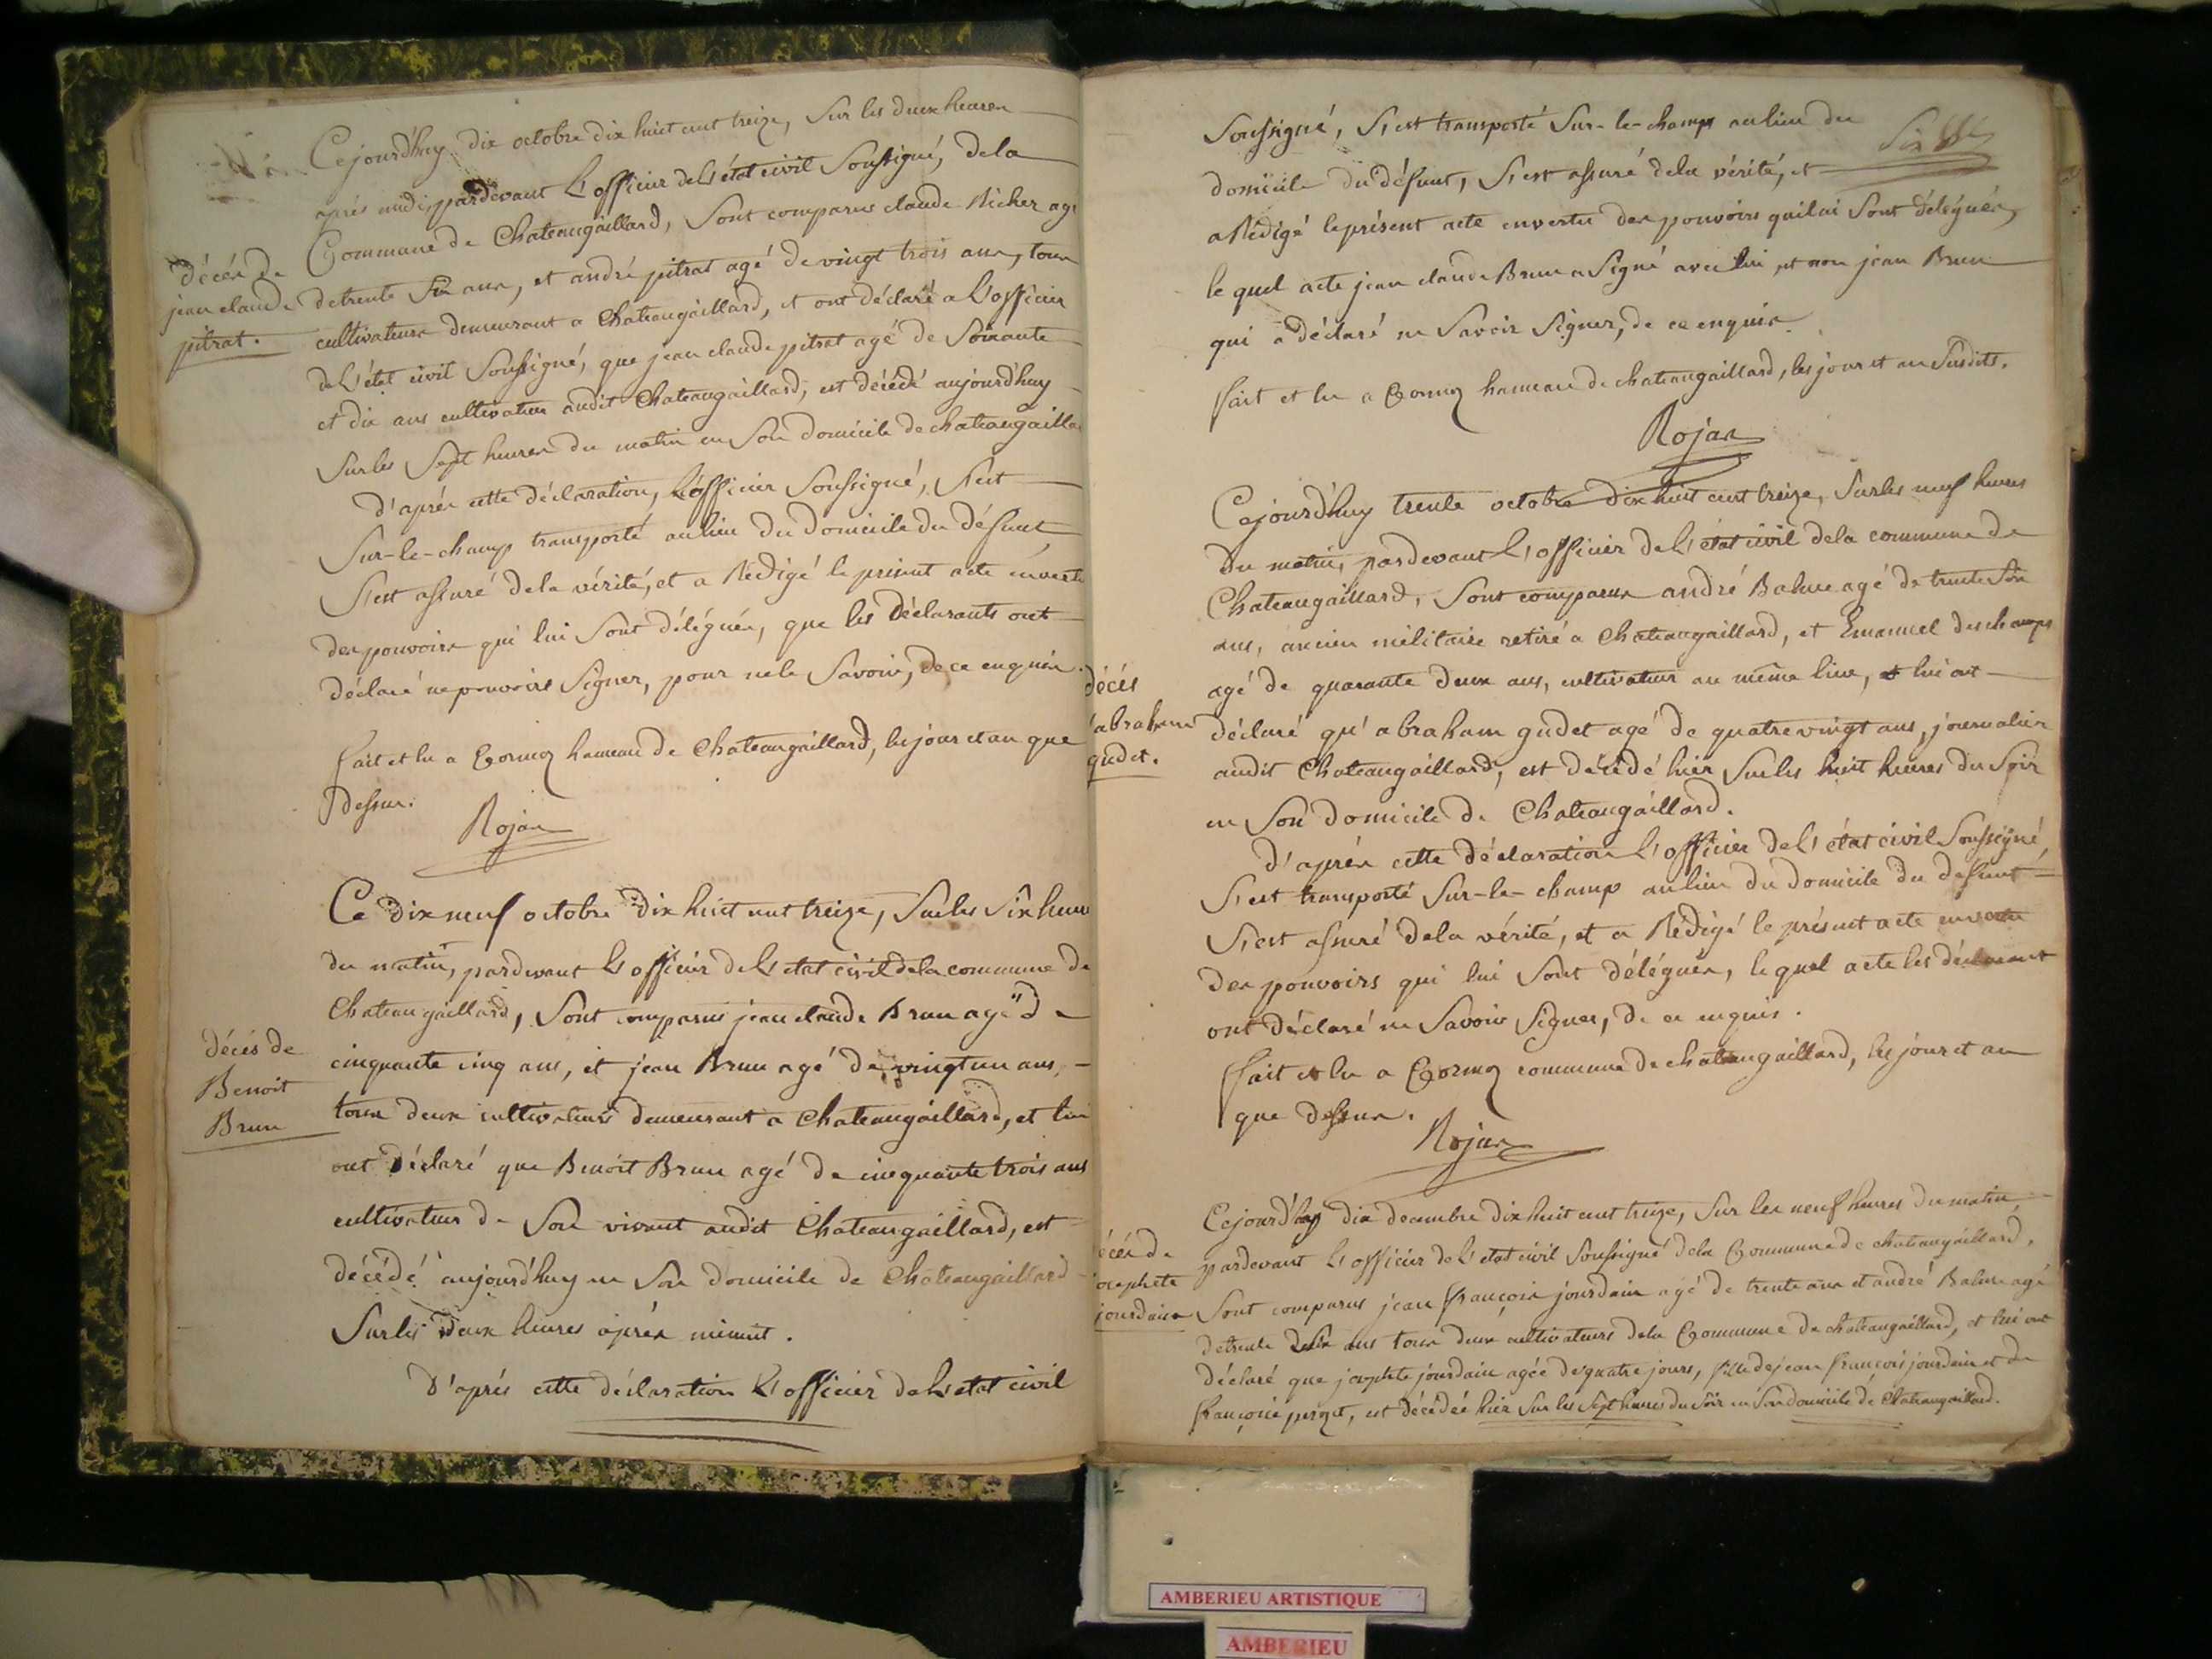 Cejourd'huy dix octobre dix huit cent treize, Sur les deux heures
après midi, pardevant L'officier del'état civil Soussigné, dela
Commune de Chateaugaillard, Sont comparus claude Richer agé
décés de
jean claude
pitrat.
detrente Six ans, et andré pitrat agé de vingt trois ans, tous
cultivateurs demeurant a Chateaugaillard, et ont déclaré a L'officier
del'état civil Soussigné, que jean claude pitrat agé de Soixante
et dix ans cultivateur audit Chateaugaillard, est décédé aujourd'huy
Sur les Sept heures du matin en Son domicile de chateaugaillard
d'après cette déclaration, L'officier Soussigné, S'est
Sur-le-champ transporté au lieu du domicile du défunt,
S'est assuré dela vérité, et a Rédigé le présent acte en vertu
des pouvoirs qui lui Sont délégués, que les déclarants ont
déclaré ne pouvoirs Signer, pour ne le Savoir, de ce enquis.
fait et lu a Cormoz hameau de Chateaugaillard, les jour et an que
dessus.
Rojan
Ce dix neuf octobre dix huit cent treize, Sur les Six heures
du matin, pardevant L'officier del'état civil dela commune de
Chateaugaillard, Sont comparus jean claude Brun agé de
décés de
Benoit
Brun
cinquante cinq ans, et jean Brun agé de vingt un ans,
tous deux cultivateurs demeurant a Chateaugaillard, et lui
ont déclaré que Benoit Brun agé de cinquante trois ans
cultivateur de Son vivant audit Chateaugaillard, est
décédé aujourd'huy en Son domicile de Chateaugaillard
Sur les deux heures après minuit.
D'après cette déclaration L'officier del'état civil
Soussigné, S'est transporté Sur-le-champ au lieu du
domicile du défunt, S'est assuré dela vérité, et
a Rédigé le présent acte en vertu des pouvoirs qui lui Sont délégués,
le quel acte jean claude Brun a Signé avec lui, et non jean Brun
qui a déclaré ne Savoir Signer, de ce enquis.
fait et lu a Cormoz hameau de chateaugaillard, les jour et an Susdits.
Rojan
Cejourd'huy trente octobre dix huit cent treize, Sur les neuf heures
du matin, pardevant L'officier del'état civil dela commune de
Chateaugaillard, Sont comparus andré Balme agé de trente Six
ans, ancien militaire retiré a Chateaugaillard, et Emanuel deschamps
agé de quarante deux ans, cultivateur au même lieu, et lui ont
décés
d'abraham
gudet.
déclaré qu'abraham gudet agé de quatre vingt ans, journalier
audit Chateaugaillard, est décédé hier Sur les huit heures du Soir
en Son domicile de Chateaugaillard.
d'après cette déclaration L'officier del'état civil Soussigné,
S'est transporté Sur-le-champ au lieu du domicile du défunt
S'est assuré dela vérité, et a Rédigé le présent acte en vertu
des pouvoirs qui lui Sont délégués, le quel acte les déclarant
ont déclaré ne Savoir Signer, de ce enquis.
fait et lu a Cormoz commune de chateaugaillard, les jour et an
que dessus.
Rojan
Cejourd'huy dix decembre dix huit cent treize, Sur les neuf heures du matin,
pardevant L'officier del'état civil Soussigné dela Commune de chateaugaillard,
décés de
josephete
jourdain
Sont comparus jean françois jourdain agé de trente ans et andré Balme agé
detrente Six ans tous deux cultivateurs dela Commune de chateaugaillard, et lui ont
déclaré que josephete jourdain agée de quatre jours, fille de jean françois jourdain et de
françoise, est décédée hier Sur les Sept heures du Soir en Son domicile de Chateaugaillard.
AMBERIEU ARTISTIQUE
AMBERIEU